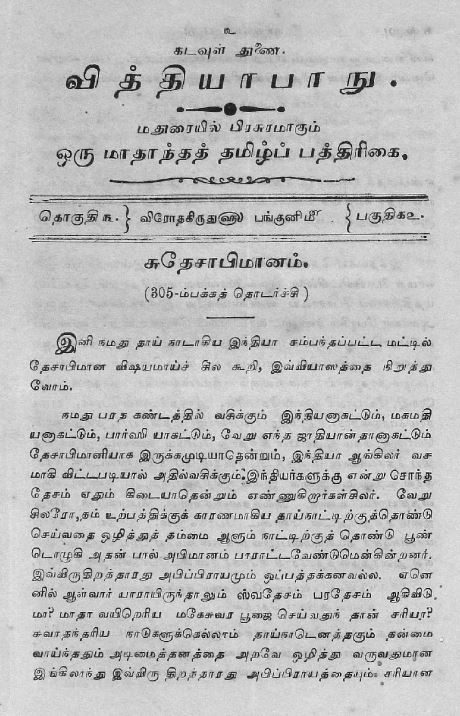 உ
கடவுள் துணை.
வித்தியாபாநு.
மதுரையில் பிரசுரமாகும்
ஒரு மாதாந்தத் தமிழ்ப் பத்திரிகை.
தொகுதி௩. } விரோதகிருது௵ பங்குனிமீ { பகுதி௧௨.
சுதேசாபிமானம்.
(305-ம்பக்கத் தொடர்ச்சி)
இனி நமது தாய் நாடாகிய இந்தியா சம்பந்தப்பட்ட மட்டில்
தேசாபிமான விஷயமாய்ச் சில கூறி, இவ்வியாஸத்தை நிறுத்து
வோம்.
நமது பரத கண்டத்தில் வசிக்கும் இந்தியனாகட்டும், மகமதி
யனாகட்டும், பார்ஸி யாகட்டும், வேறு எந்த ஜாதியான்தானாகட்டும்
தேசாபிமானியாக இருக்கமுடியாதென்றும், இந்தியா ஆங்கிலர் வச
மாகி விட்டபடியால் அதில்வசிக்கும் இந்தியர்களுக்கு என்று சொந்த
தேசம் ஏதும் கிடையாதென்றும் எண்ணுகிறார்கள்சிலர். வேறு
சிலரோ, நம் உற்பத்திக்குக் காரணமாகிய தாய்நாட்டிற்குத்தொண்டு
செய்வதை ஒழித்துத் தம்மை ஆளும் நாட்டிற்குத் தொண்டு பூண்
டொழுகி அதன் பால் அபிமானம் பாராட்டவேண்டுமென்கின்றனர்.
இவ்விருதிறத்தாரது அபிப்பிராயமும் ஒப்பத்தக்கனவல்ல. ஏனெ
னில் ஆள்வார் யாராயிருந்தாலும் ஸ்வதேசம் பரதேசம் ஆகிவிடு
மா? மாதா வயிறெரிய மகேசுவர பூஜை செய்வதுந் தான் சரியா?
சுவாதந்தரிய நாடுகளுக்கெல்லாம் தாய்நாடெனத்தகும் தன்மை
வாய்ந்ததும் அடிமைத்தனத்தை அறவே ஒழித்து வருவதுமான
இங்கிலாந்து இவ்விரு திறத்தாரது அபிப்பிராயத்தையும் சரியான